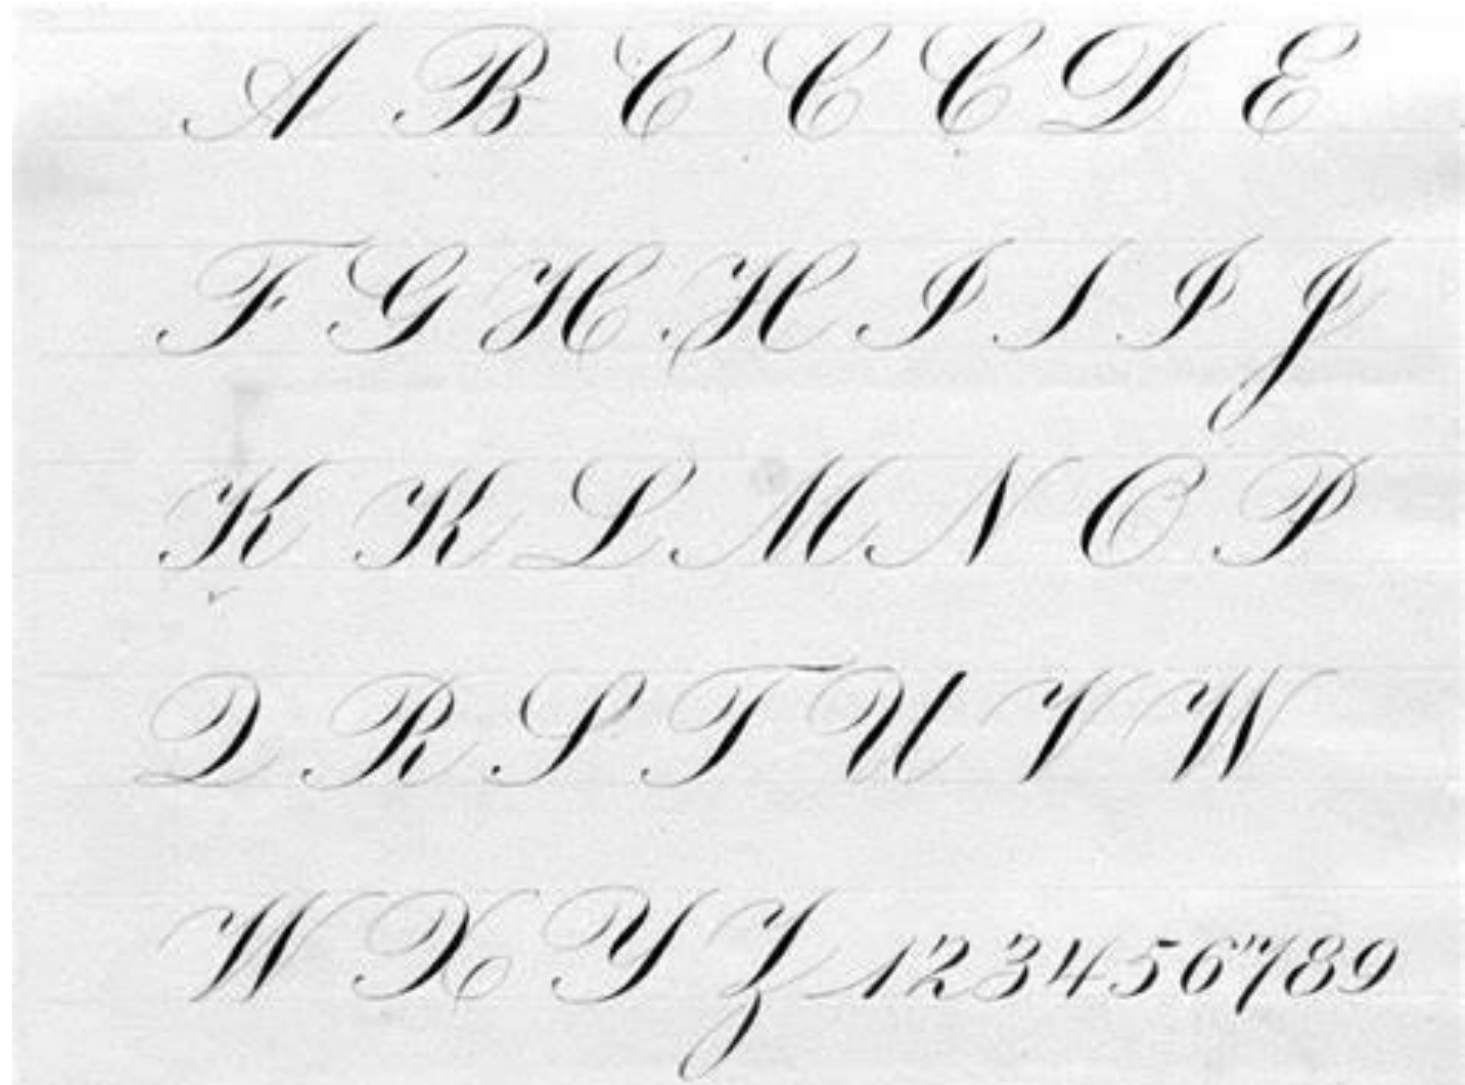 A B C C C D E
F G H H I I I J
K K L M N O P
Q R S T U V W
W X Y Z 123456789